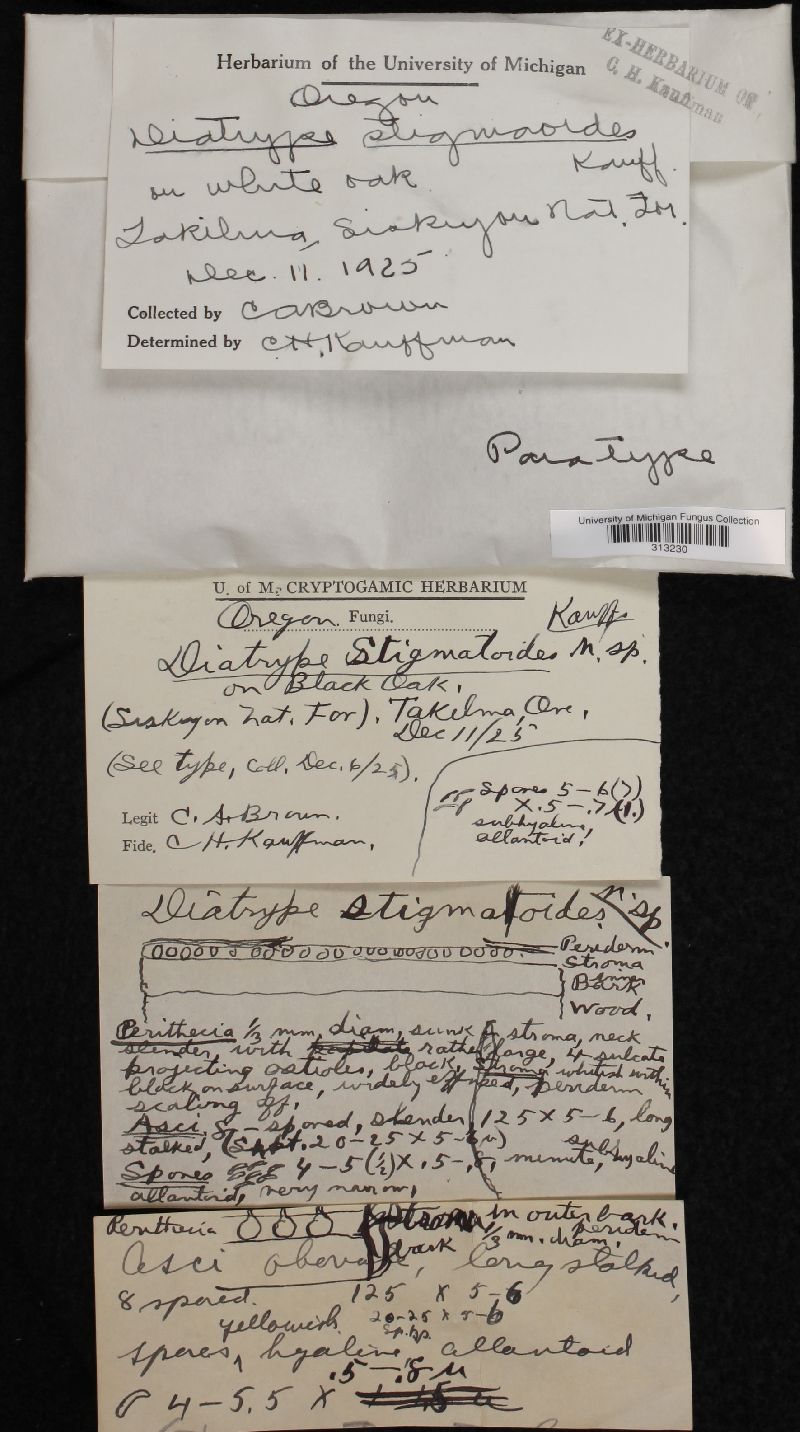 Herbarium of the University of Michigan
EX-HERBARIUM OF
C. H. Kauffman
Oregon
Diatrype stigmaoides
Kauff.
on white oak
Takilma, Siskiyou Nat. For.
Dec. 11. 1925
Collected by CABrown
Determined by CH.Kauffman
Paratype
University of Michigan Fungus Collection
313230
U. of M. CRYPTOGAMIC HERBARIUM
Oregon Fungi. Kauff.
Diatrype Stigmatoides n. sp.
on Black Oak.
(Siskiyou Nat. For). Takilma, Ore.
Dec 11/25
(See type, Coll. Dec. 6/25).
Spores 5-6(7)
X .5-.7(1.)
subhyaline
allantoid!
Legit C. A. Brown.
Fide. C H. Kauffman.
Diatrype stigmatoides. n. sp.
Periderm
Stroma
Inner
Bark
Wood.
Perithecia 1/3 mm, diam, sunk stroma, neck
slender, with rather large, 4-sulcate
projecting ostioles, black, Stroma whitish within
black on surface, widely effused, periderm
scaling off.
Asci 8-spored, slender, 125 x 5-6, long
stalked, (Sp.pt. 20-25 x 5-6 u)
Spores 4-5(½) x .5-.8, minute, subhyaline
allantoid, very narrow,
Perithecia Stroma in outer bark.
periderm
dark 1/3 mm. diam.
Asci obovate, long stalked,
8 spored. 125 x 5-6
yellowish 20-25 x 5-6
sp.bp.
spores, hyaline allantoid
.5-.8 u
4-5.5 x